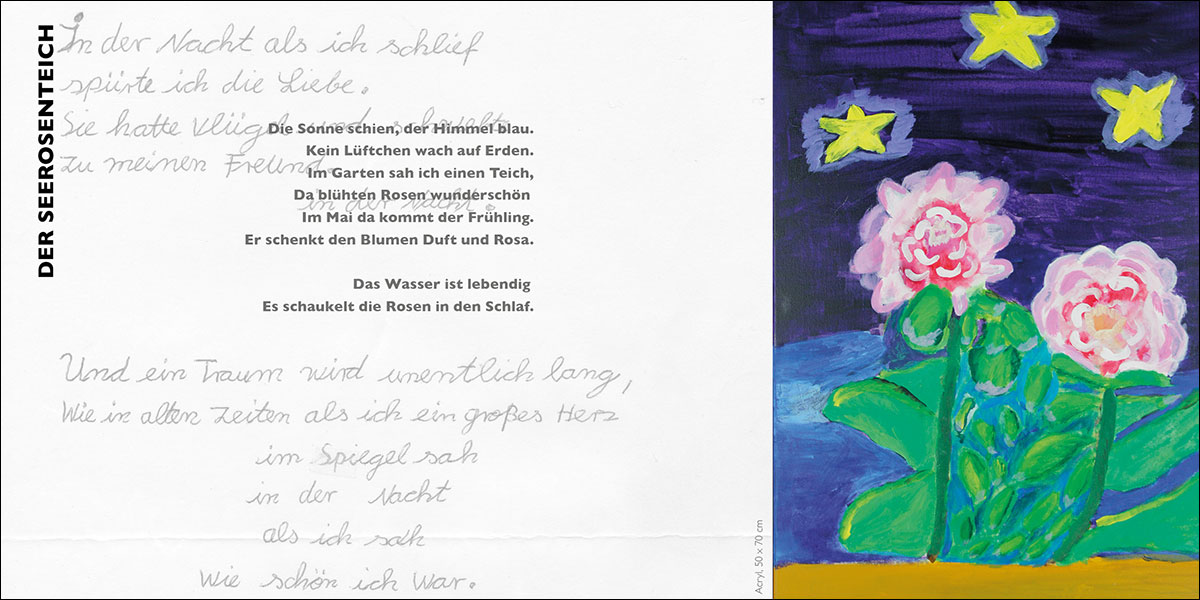 DER SEEROSENTEICH
In der Nacht als ich schlief
spürte ich die Liebe.
Sie hatte Vlügel und schwebt
zu meinen Freund.
in der Nacht.
Die Sonne schien, der Himmel blau.
Kein Lüftchen wach auf Erden.
Im Garten sah ich einen Teich,
Da blühten Rosen wunderschön
Im Mai da kommt der Frühling.
Er schenkt den Blumen Duft und Rosa.
Das Wasser ist lebendig
Es schaukelt die Rosen in den Schlaf.
Und ein Traum wird unentlich lang,
Wie in alten Zeiten als ich ein großes Herz
im Spiegel sah
in der Nacht
als ich sah
Wie schön ich war.
Acryl, 50 x 70 cm